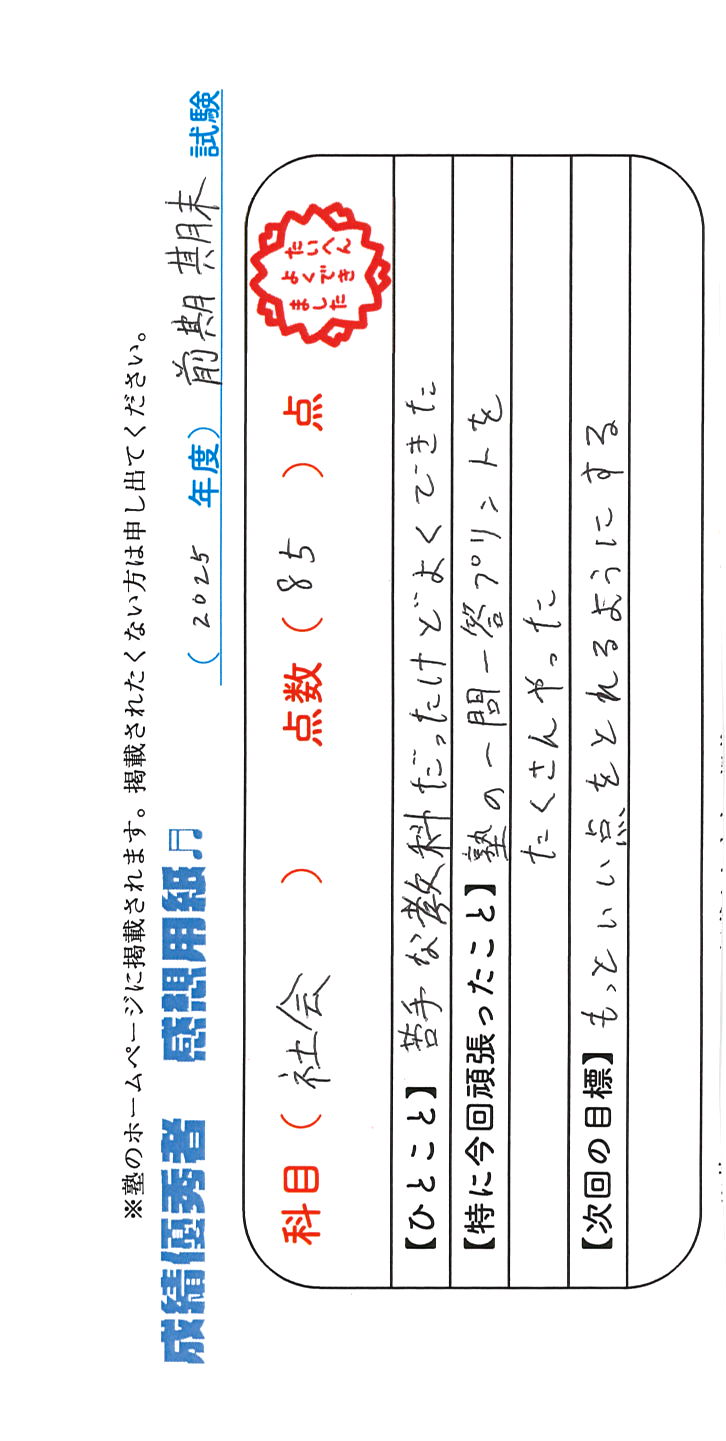 ※塾のホームページに掲載されます。掲載されたくない方は申し出てください。
成績優秀者 感想用紙♫
（ 2025 年度） 前期期末 試験
科目（ 社会 ） 点数（ 85 ）点
たいへん
よくでき
ました
【ひとこと】 苦手な教科だったけどよくできた
【特に今回頑張ったこと】 塾の一問一答プリントを
たくさんやった
【次回の目標】 もっといい点をとれるようにする